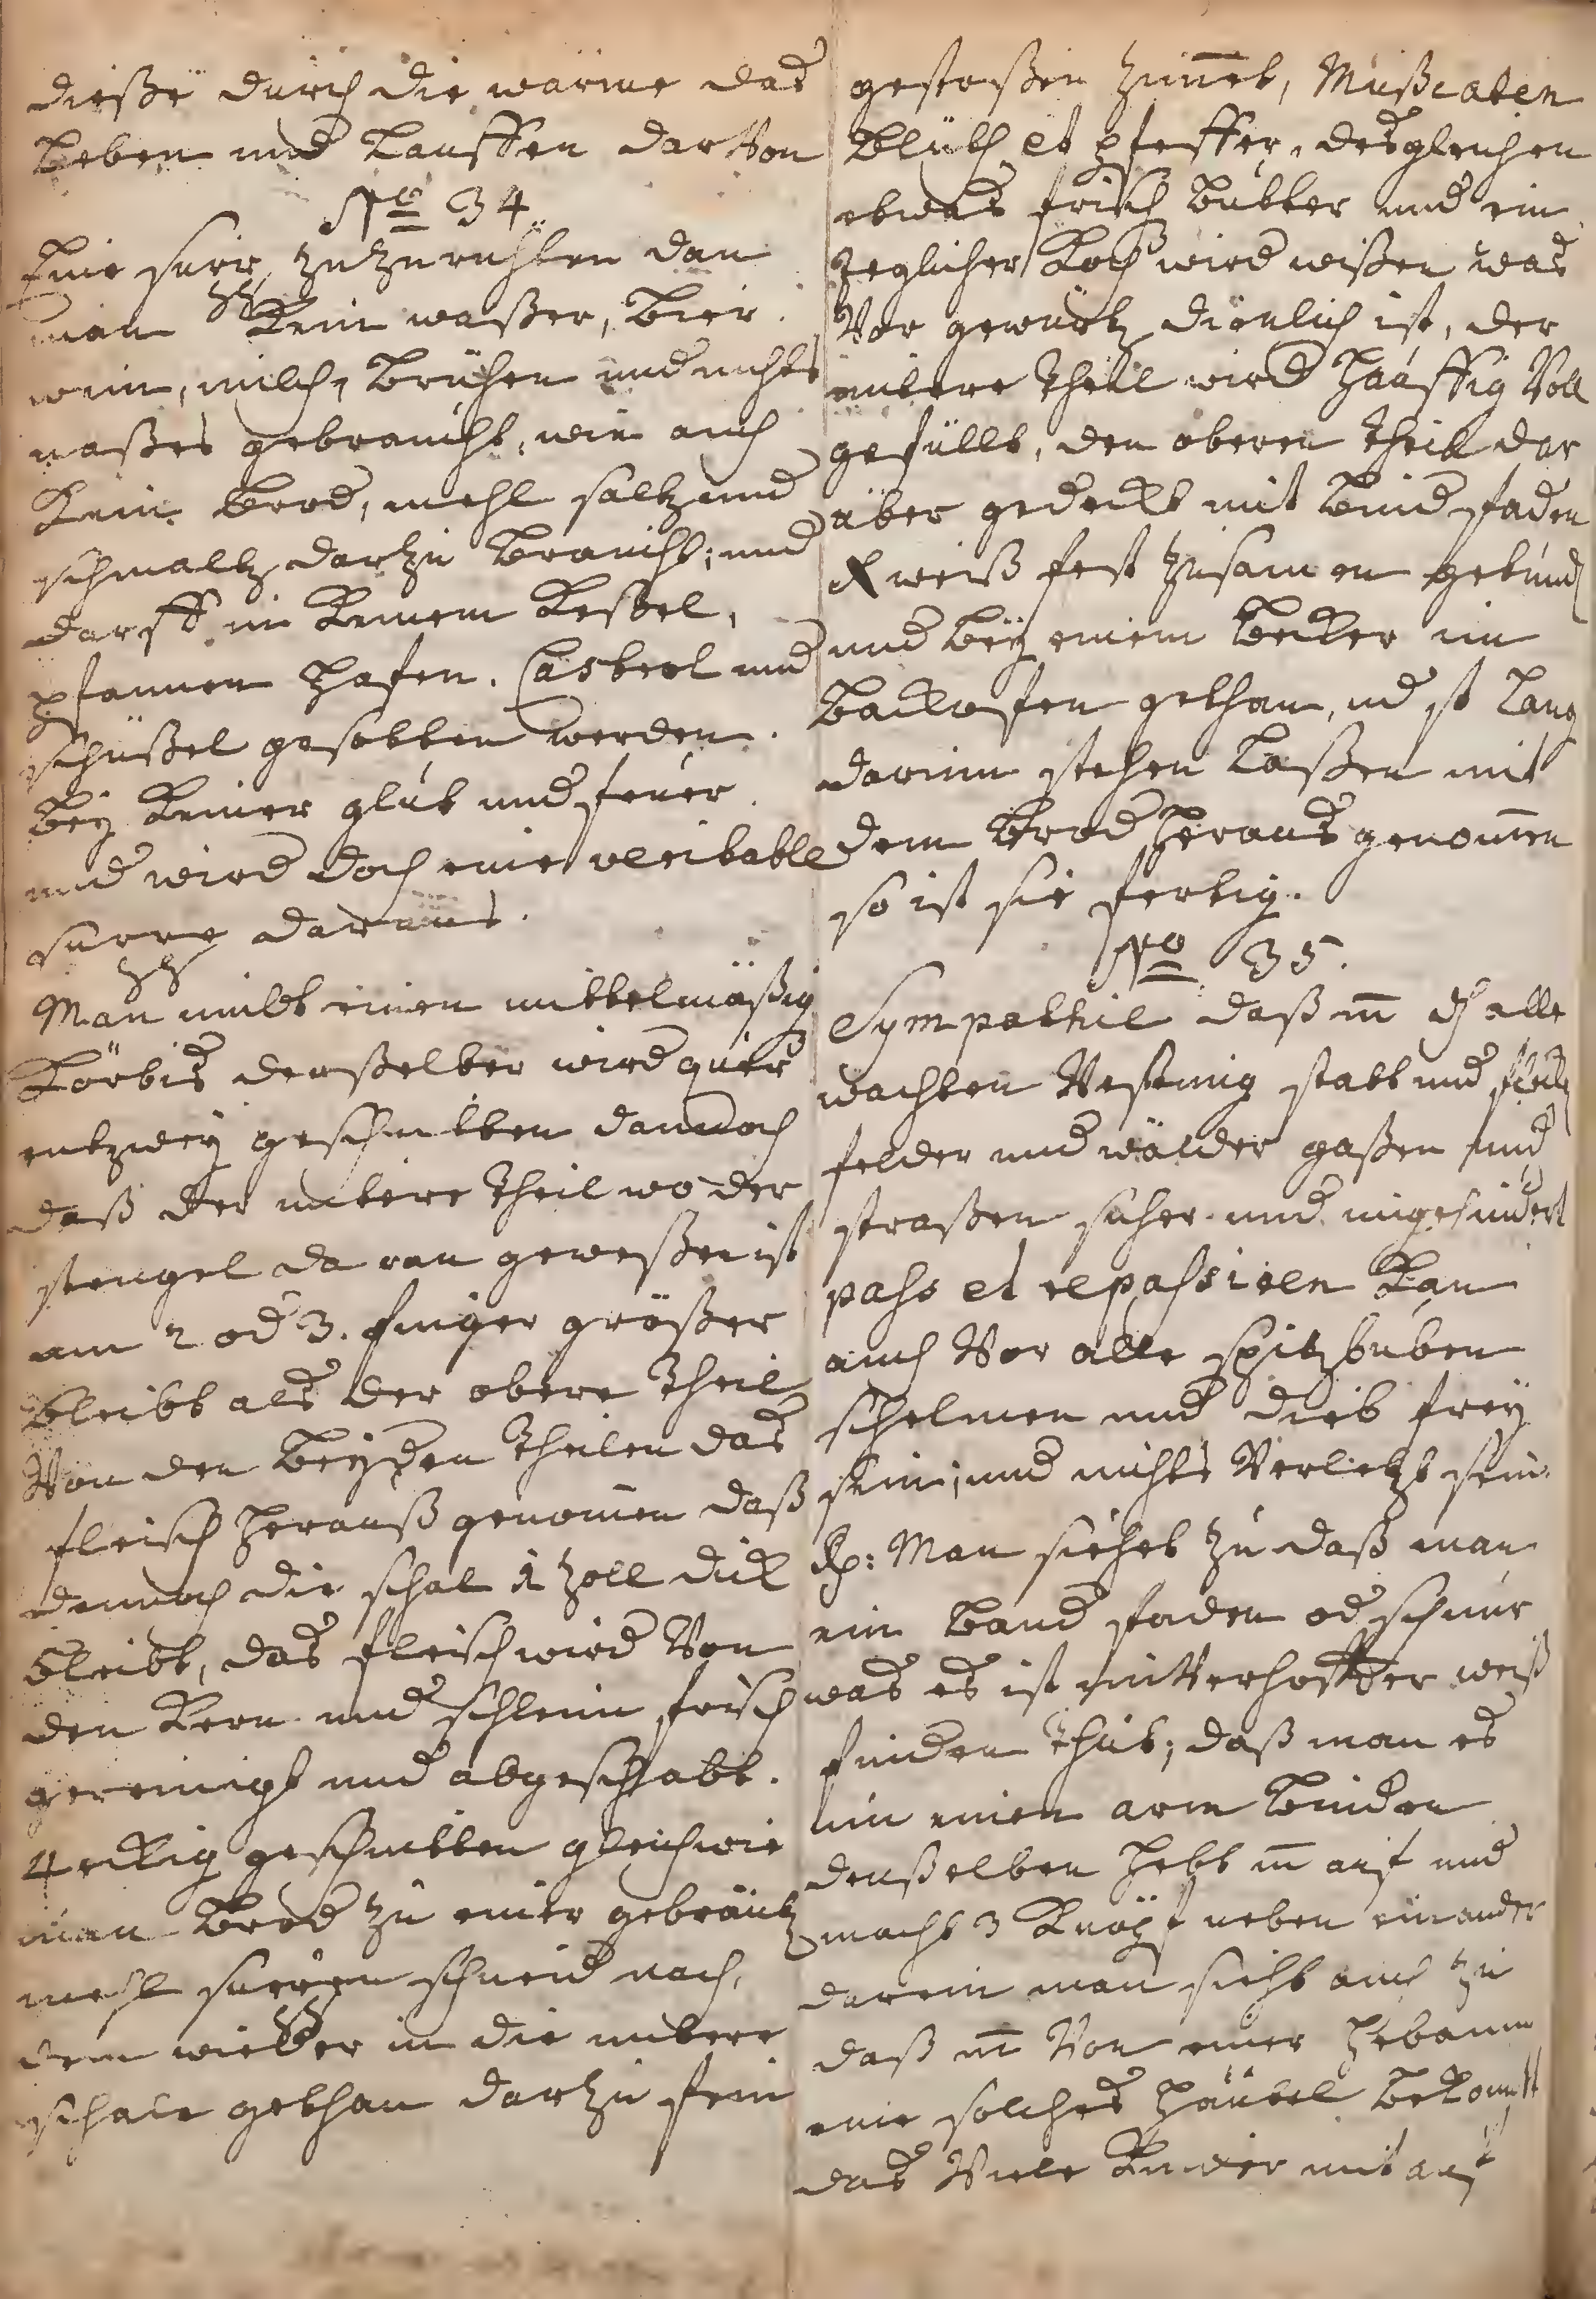 dieße durch die wärme das
Leben und Lauffen darvon
No 34
Eine supp, zuzurichten dan
man kein waßer, Bier
wein, milch, Brühen und nichts
naßes gebraucht, wie auch
Kein Brod, mehl saltz und
schmaltz darzu braucht; und
darff in Keinem Keßel,
pfannen Hafen. Casterl und
schüßel gesotten werden.
Bey Keiner glut und feüer
und wird doch eine veritable
suppe daraus.
Man nimbt einen mittelmäßig
Körbis denßelben wird quer
entzwey geschnitten dannoch
daß der untere theil wo der
stengel daran geweßen ist
um 2 od 3. finger größer
bleibt als der obere theil
Von den Beyden theilen das
fleisch herauß genomen daß
dennoch die schal 1 zoll dick
bleibt, das fleisch wird Von
den Kern und schleim frisch
gereinigt und abgeschabt.
4 eckig geschnitten gleichwie
man Brod zu einer gebräntz
mehl suppen schneid nach,
dem wieder in die untere
schale gethan darzu fein
gestoßen Zimet, Mußcaten
Blüth et pfeffer, desgleichen
etwas frisch Butter und ein
Jeglicher Koch wird wißen was
Vor gewürtz dienlich ist, der
untere theil wird häuffig Voll
gefüllt, den oberen theil dar
über gedeckt mit Bindfaden
X weiß fest zusamen gebund
und bey einem Becker im
Backoffen gethan, und so Lang
darinn stehen Laßen mit
dem Brod heraus genomen
so ist sie fertig.
No 35.
Sympathie daß m̄ dh alle
wachten Vestung statt und
felder und wälder gaßen und
straßen sicher und ungehindert
pass et repassiren Kan
auch Vor alle spitzbuben
schelmen und dieb frey
sein, und nichts Verletzt sein.
Rp: Man siehet zu daß man
ein Band faden od schnur
was es ist unverhoffter weiß
finden thut; daß man es
um einen arm Binden
denßelben hebt m̄ auf und
macht 3 Knöpf neben einander
darein man sieht auch zu
daß m̄ Von einer Hebamm
eine solches Häutel bekomt
das Viele Kinder mit auf